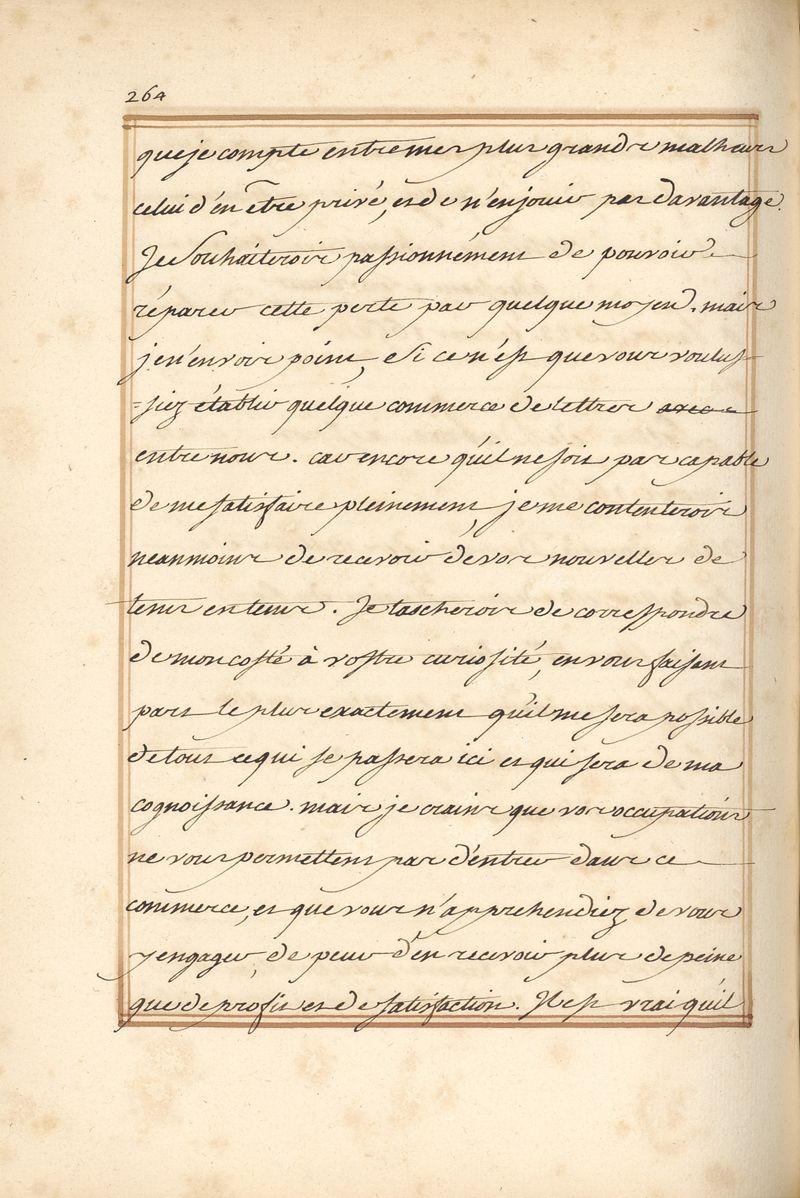 264
que je compte entre mes plus grands malheurs
celui d'en être privé, et de n'en jouir pas davantage.
Je souhaiterois passionnément de pouvoir
réparer cette perte par quelque moyen. mais
je n'en vois point, si ce n'est que vous voulus-
=siez établir quelque commerce de lettres avec
entre nous. car encore qu'il ne soit pas capable
de me satisfaire pleinement, je me contenterois
neanmoins de recevoir de vos nouvelles de
tems en tems. Je tascherois de correspondre
de mon costé à vostre curiosité, en vous faisant
part le plus exactement qu'il me sera possible
de tout ce qui se passera ici et qui sera de ma
cognoissance. mais je crains que vos occupations
ne vous permettent pas d'entrer dans ce
commerce, et que vous n'apprehendiez de vous
y engager, de peur d'en recevoir plus de peine
que de profit et de satisfaction. Il est vrai qu'il